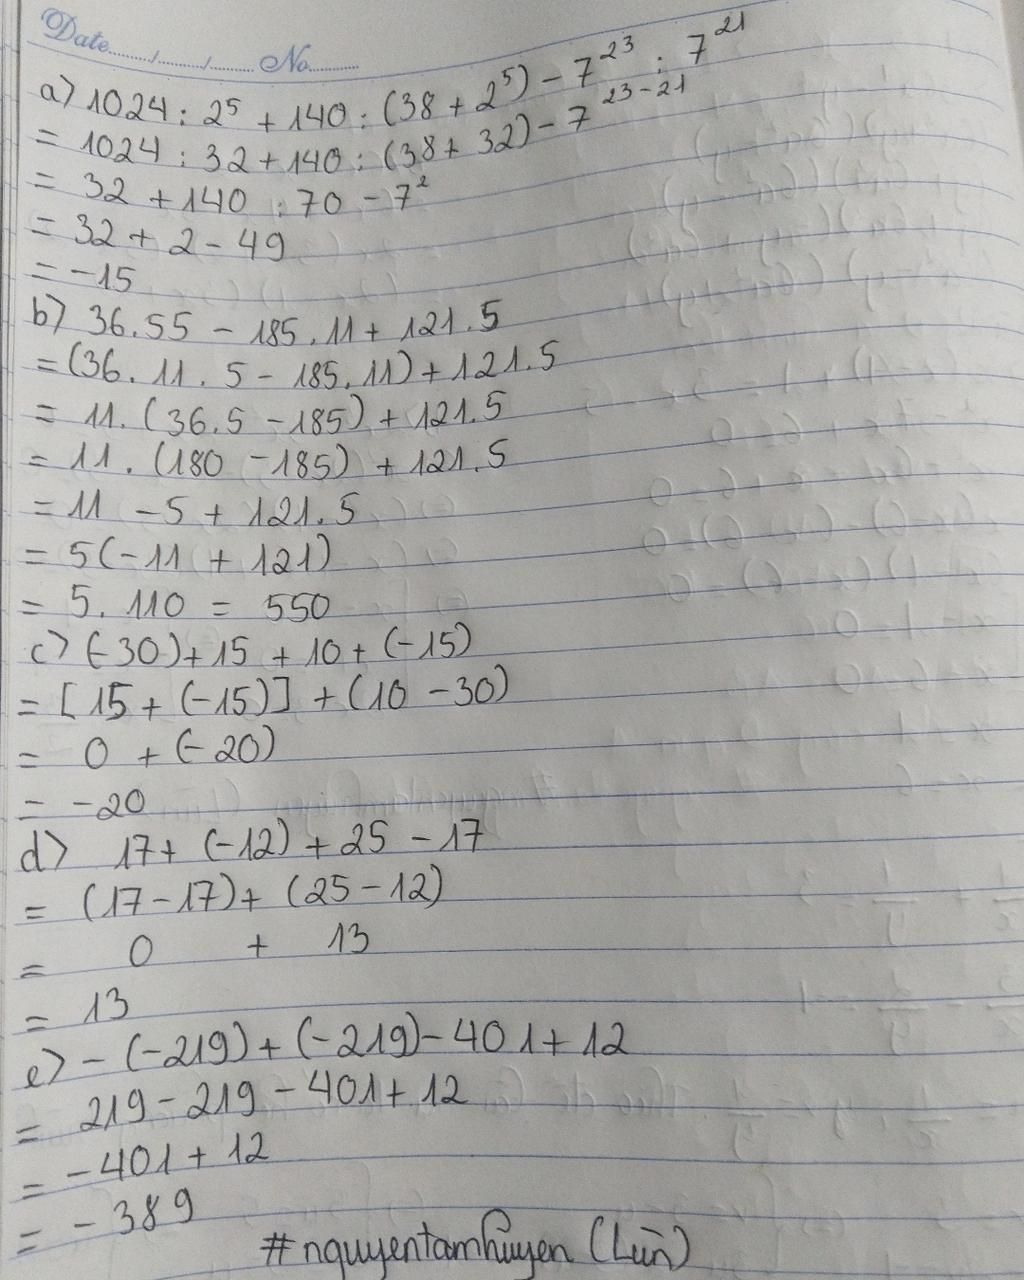 Date......./......./....... No..........
a) 1024 : 2⁵ + 140 : (38 + 2⁵) - 7²³ : 7²¹
= 1024 : 32 + 140 : (38 + 32) - 7²³⁻²¹
= 32 + 140 : 70 - 7²
= 32 + 2 - 49
= -15
b) 36.55 - 185.11 + 121.5
= (36.11.5 - 185.11) + 121.5
= 11.(36.5 - 185) + 121.5
= 11.(180 - 185) + 121.5
= 11 -5 + 121.5
= 5(-11 + 121)
= 5.110 = 550
c) (-30) + 15 + 10 + (-15)
= [15 + (-15)] + (10 - 30)
= 0 + (-20)
= -20
d) 17 + (-12) + 25 - 17
= (17 - 17) + (25 - 12)
= 0 + 13
= 13
e) - (-219) + (-219) - 401 + 12
= 219 - 219 - 401 + 12
= -401 + 12
= -389
#nguyentamhuyen (Lùn)